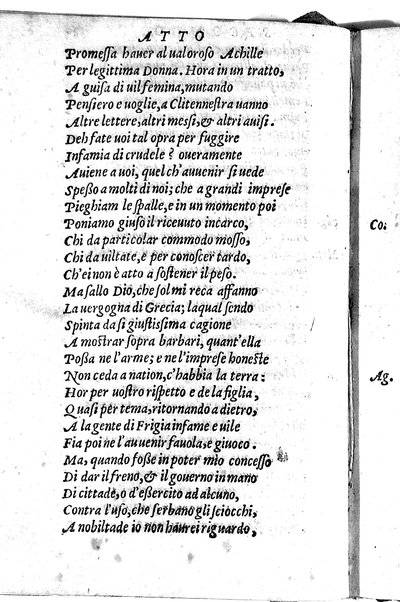 ATTO
Promessa hauer al ualoroso Achille
Per legittima Donna. Hora in un tratto,
A guisa di uil femina, mutando
Pensiero e uoglie, a Clitennestra uanno
Altre lettere, altri messi, & altri auisi.
Deh fate uoi tal opra per fuggire
Infamia di crudele? oueramente
Auiene a uoi, quel ch'auuenir si uede
Spesso a molti di noi; che a grandi imprese
Pieghiam le spalle, e in un momento poi
Poniamo giuso il riceuuto incarco,
Chi da particolar commodo mosso,
Chi da uiltate, e per conoscer tardo,
Ch'ei non è atto a sostener il peso.
Ma sallo Dio, che sol mi reca affanno
La uergogna di Grecia; laqual sendo
Spinta da si giustissima cagione
A mostrar sopra barbari, quant'ella
Possa ne l'arme; e ne l'imprese honeste
Non ceda a nation, c'habbia la terra:
Hor per uostro rispetto e de la figlia,
Quasi per tema, ritornando a dietro,
A la gente di Frigia infame e uile
Fia poi ne l'auuenir fauola, e giuoco.
Ma, quando fosse in poter mio concesso
Di dar il freno, & il gouerno in mano
Di cittade, o d'essercito ad alcuno,
Contra l'uso, che serbano gli sciocchi,
A nobiltade io non haurei riguardo,
Co.
Ag.